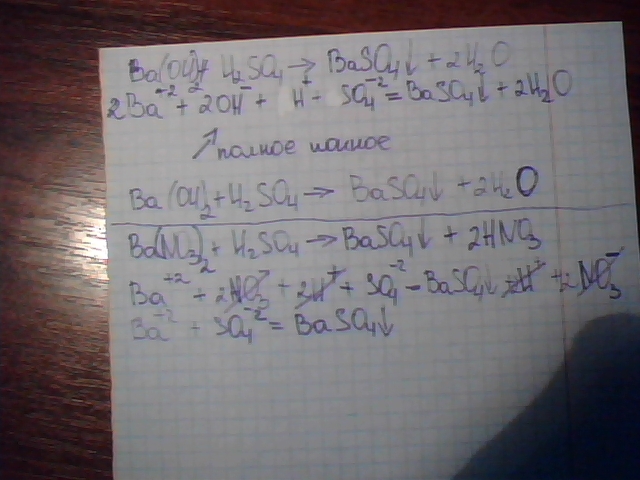 Ba(OH)₂ + H₂SO₄ → BaSO₄↓ + 2H₂O
2Ba⁺² + 2OH⁻ + H⁺ - SO₄⁻² = BaSO₄↓ + 2H₂O
↗ полное ионное
Ba(OH)₂ + H₂SO₄ → BaSO₄↓ + 2H₂O
Ba(NO₃)₂ + H₂SO₄ → BaSO₄↓ + 2HNO₃
Ba⁺² + 2NO₃⁻ + 2H⁺ + SO₄⁻² - BaSO₄↓ + 2H⁺ + 2NO₃⁻
Ba⁺² + SO₄⁻² = BaSO₄↓